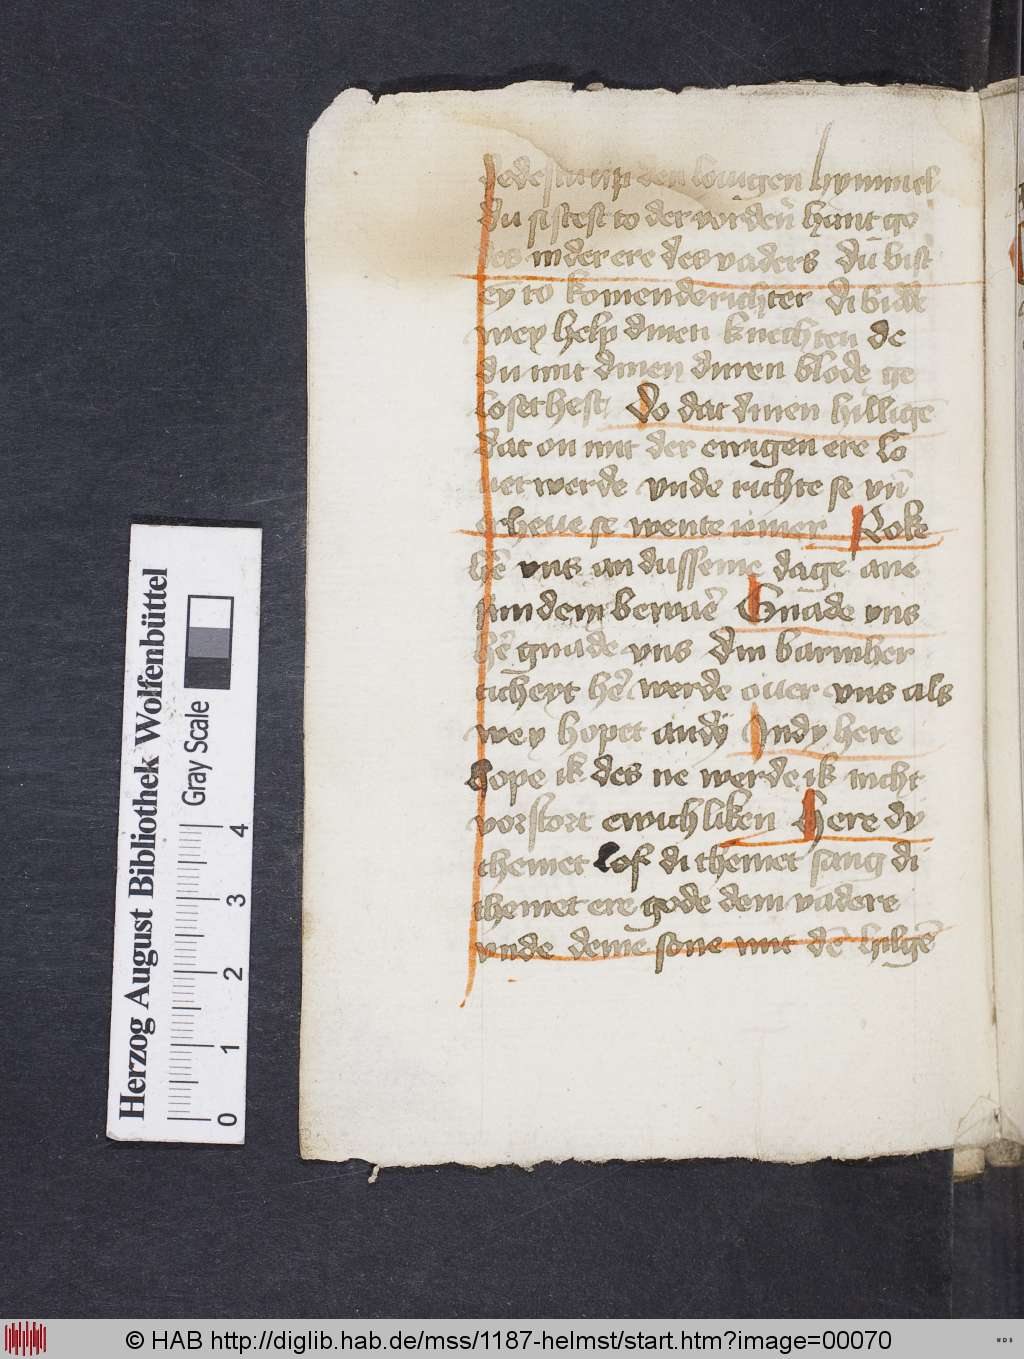 dedestu up den konigen hymmel
du sistest to der vorderñ hant go
des in der ere des vaders du bist
eȳ to komende richter di bidde
wey help dinen knechten de
du mit dinen duren blode ge
loset hest Do dat dinen hilligē
dat on mit der ewigen ere lo
net werde vnde richte se vñ
erheue se wente iemer Roke
hē vns an dusseme dage ane
sunden bewarē Gnade vns
hē gnade vns din barmher
ticheyt hē werde ouer vns als
wey hopet an dy In dy here
hope ik des ne werde ik nicht
vorstort ewichliken Here dy
themet Lof di themet sang di
themet ere gode dem vadere
vnde deme sone mit dē hilgē
Herzog August Bibliothek Wolfenbüttel
Gray Scale
0 1 2 3 4
© HAB http://diglib.hab.de/mss/1187-helmst/start.htm?image=00070
WDB